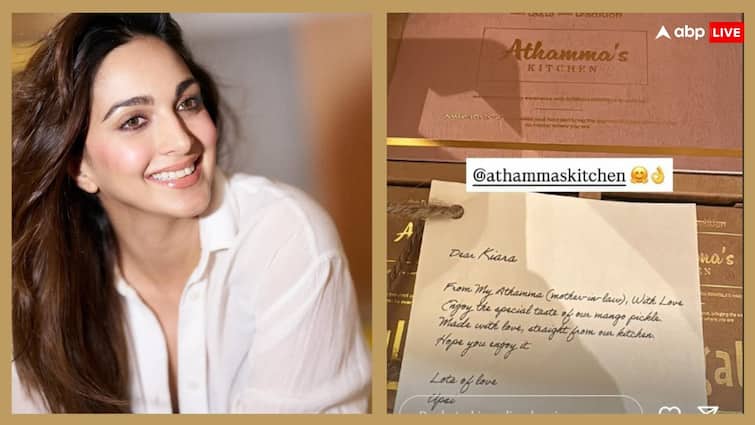 abp LIVE
taste tradition
Athamma's
KITCHEN
@athammaskitchen 🤗👌
Dear Kiara
From My Athamma (mother-in-law), With Love
Enjoy the special taste of our mango pickle.
Made with love, straight from our kitchen.
Hope you enjoy it
Lots of love
KITCHEN